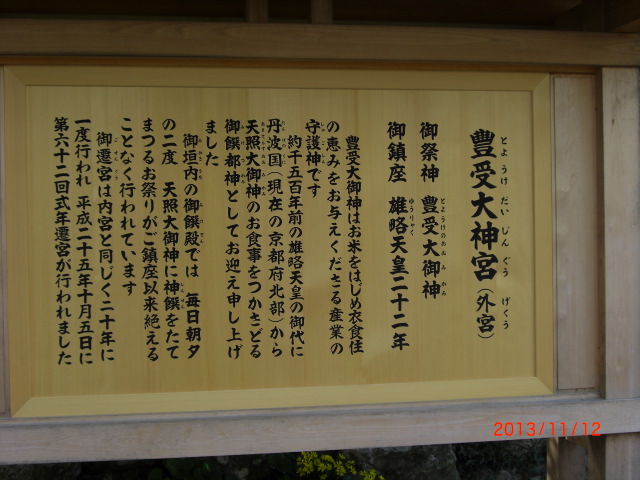 豊受大神宮（外宮）
とようけだいじんぐう　げくう
御祭神　豊受大御神
とようけのおおみかみ
御鎮座　雄略天皇二十二年
ゆうりゃく
豊受大御神はお米をはじめ衣食住
の恵みをお与えくださる産業の
守護神です
約千五百年前の雄略天皇の御代に
丹波国（現在の京都府北部）から
天照大御神のお食事をつかさどる
御饌都神としてお迎え申し上げ
ました
御垣内の御饌殿では　毎日朝夕
の二度　天照大御神に神饌をたて
まつるお祭りがご鎮座以来絶える
ことなく行われています
御遷宮は内宮と同じく二十年に
一度行われ　平成二十五年十月五日に
第六十二回式年遷宮が行われました
2013/11/12